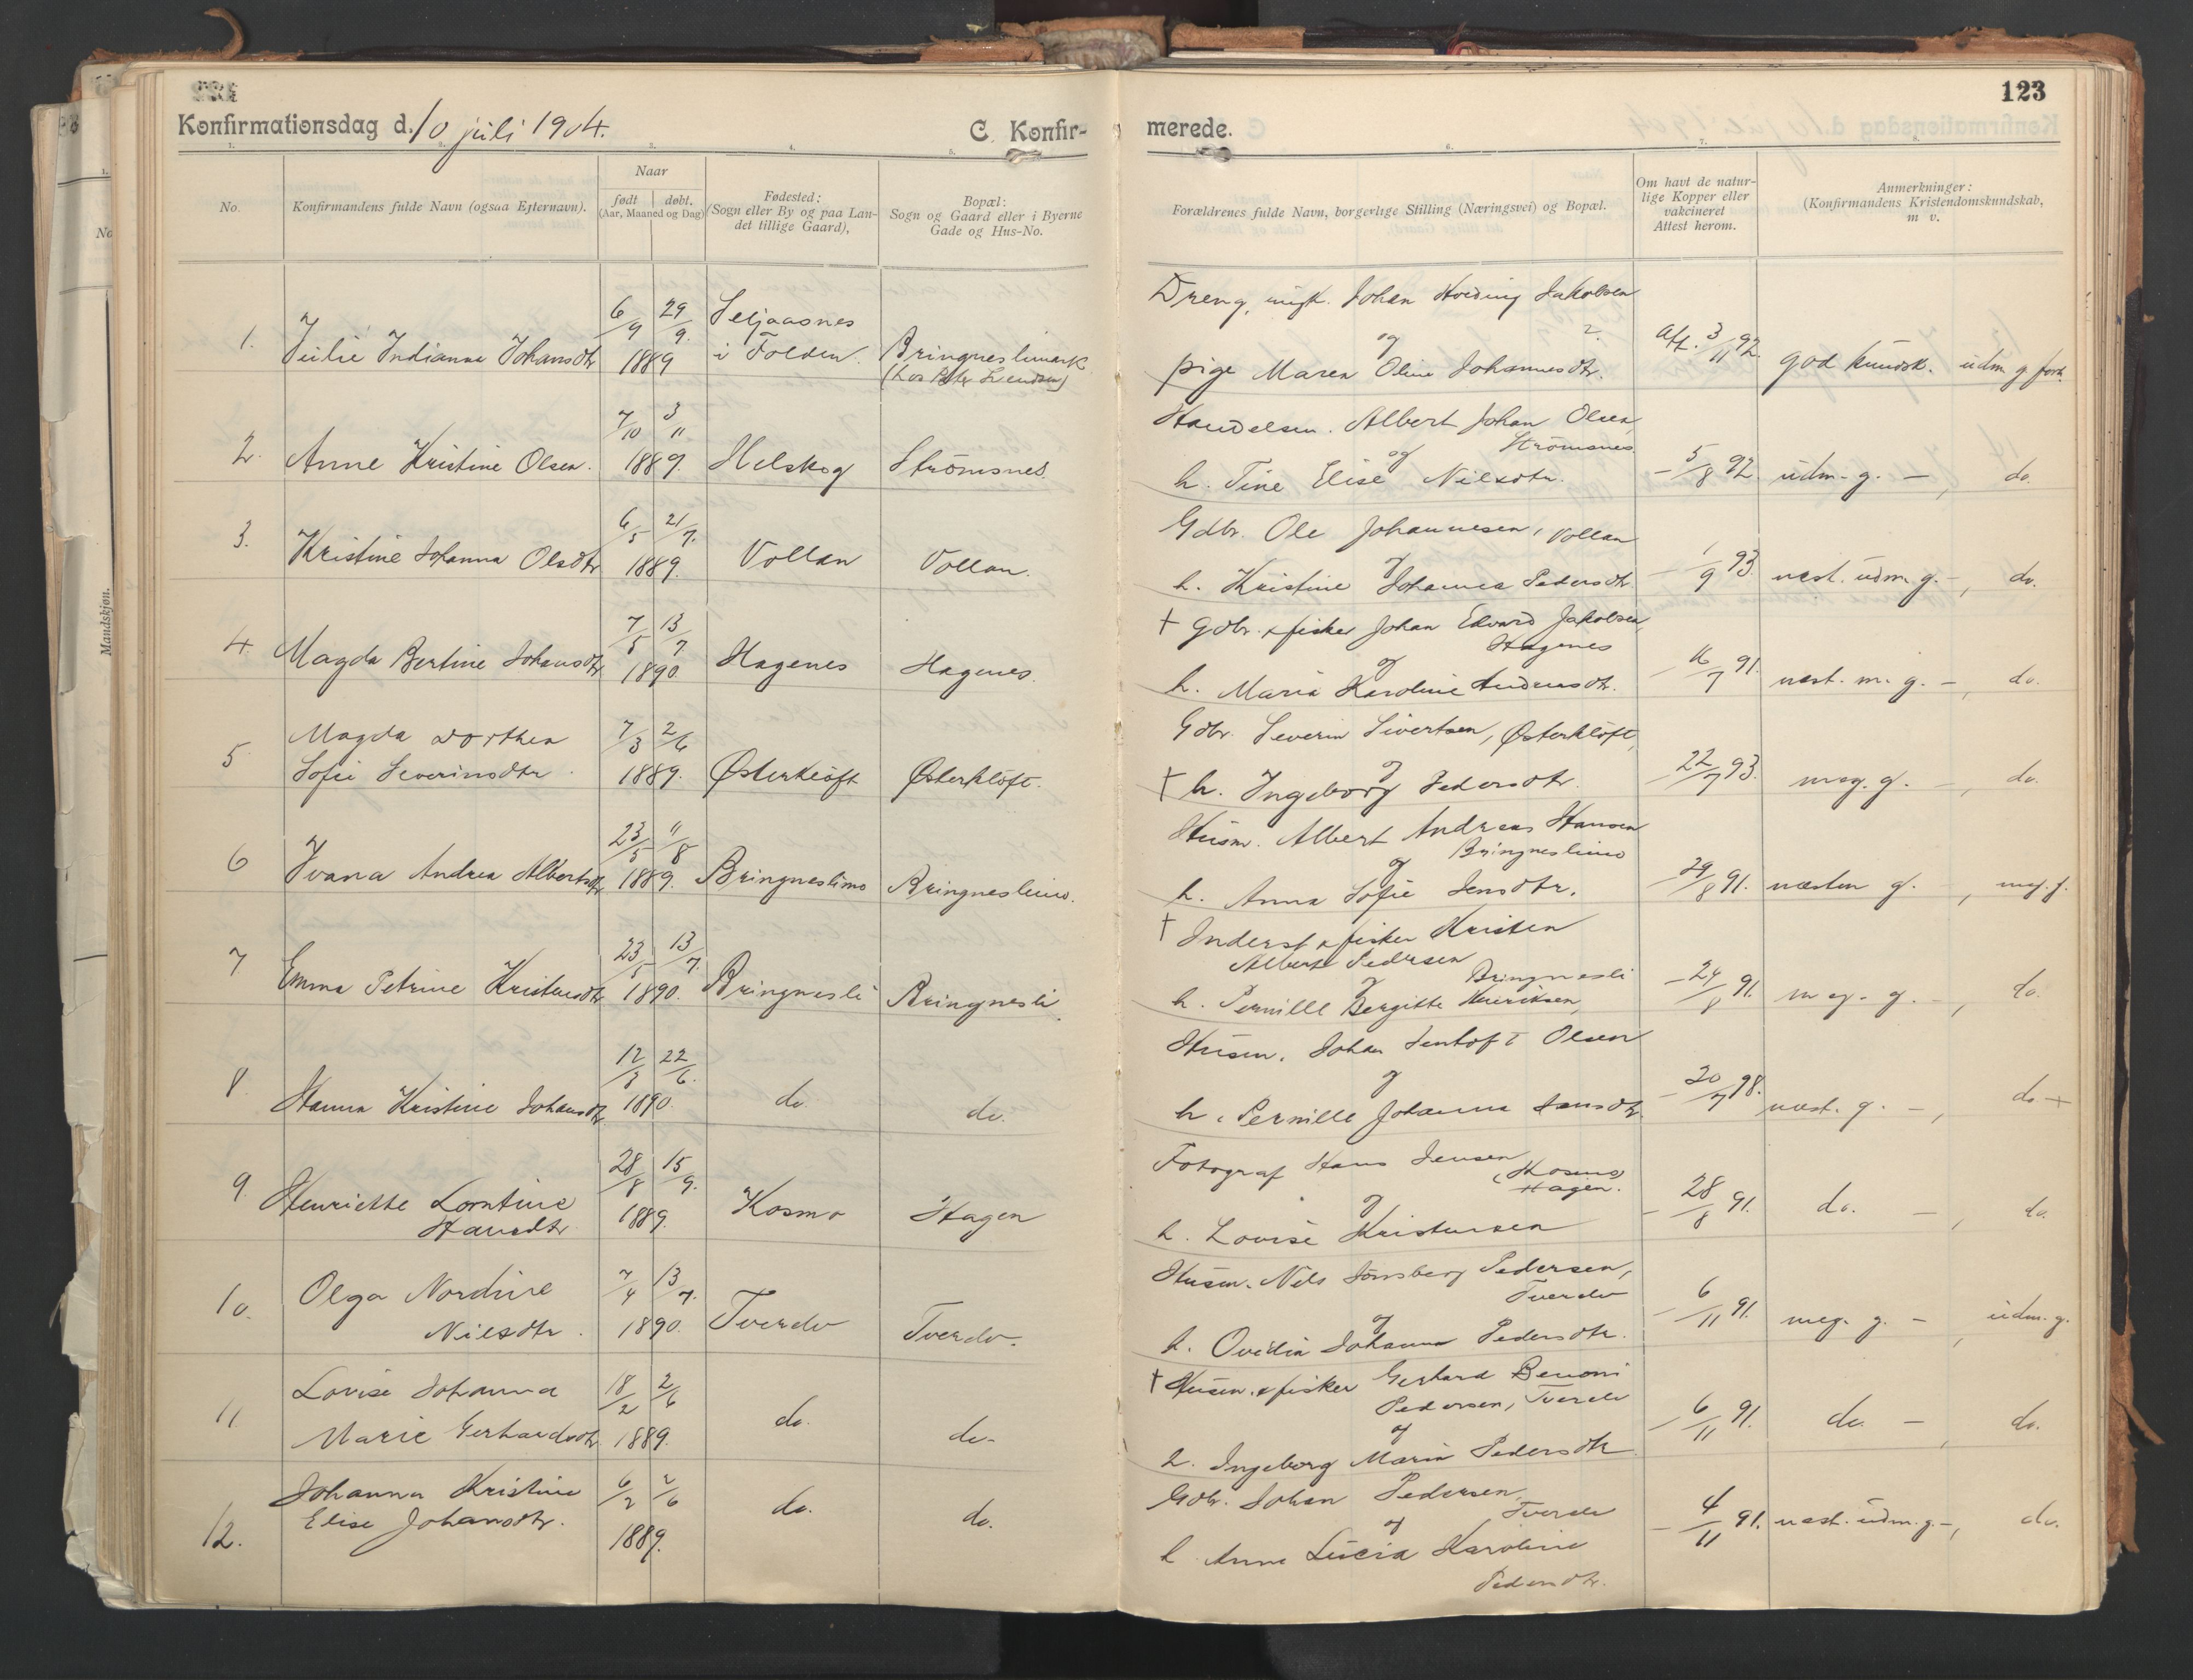 123
Konfirmationsdag d. 10 juli 1904.
C. Konfir-
merede.
1. 2. 3. 4. 5. 6. 7. 8.
No.
Konfirmandens fulde Navn (ogsaa Efternavn).
Naar
født | døbt.
(Aar, Maaned og Dag)
Fødested:
(Sogn eller By og paa Lan-
det tillige Gaard),
Bopæl:
Sogn og Gaard eller i Byerne
Gade og Hus-No.
Forældrenes fulde Navn, borgerlige Stilling (Næringsvei) og Bopæl.
Om havt de natur-
lige Kopper eller
vakcineret
Attest herom.
Anmerkninger:
(Konfirmandens Kristendomskundskab,
m v.
1. Julie Indianna Johansdtr 6/9 29/9. 1889
Seljaasnes
i Folden.
Bringneslimark
Dreng, ungk. Johan Hveding Jakobsen
og
pige Maren Oline Johannesdtr.
att. 3/11 92. god kundsk. udm. g. forh.
2. Anne Kristine Olsen. 7/10 3/11 1889. Helskog Strömsnes.
Handelsm. Albert Johan Olsen,
Strömsnes
og
h. Tine Elise Nilsdtr.
– 5/8 92. udm. g. –, do.
3. Kristine Johanna Olsdtr 6/5 21/7. 1889. Vollan Vollan.
Gdbr. Ole Johannesen, Vollan
og
h. Kristine Johanna Pedersdtr.
– 1/9 93. næst. udm. g. –, do.
4 Magda Bertine Johansdtr 7/5 13/7 1890. Hagenes Hagenes.
† Gdbr. & fisker Johan Edvard Jakobsen,
Hagenes
og
h. Maria Karoline Andersdtr.
– 16/7 91. næst. m. g. –, do.
5 Magda Dorthea
Sofie Severinsdtr. 7/3 2/6 1889. Østerkløft Østerkløft.
Gdbr. Severin Sivertsen, Østerkløft,
og
† h. Ingeborg Pedersdtr.
– 22/7 93. meg. g. –, do.
6 Ivana Andrea Albertsdtr 23/5 11/8 1889. Bringneslimo Bringneslimo.
Husm. Albert Andreas Hansen
Bringneslimo
og
h. Anna Sofie Jensdtr.
– 29/8 91. næsten g. –, meg. g.
7 Emma Petrine Kristensdtr 23/5 13/7. 1890. Bringnesli Bringnesli.
† Inderst & fisker Kristen
Albert Pedersen
Bringnesli
og
h. Pernille Bergitte Henriksen,
– 24/8 91. meg. g. –, do.
8 Hanna Kristine Johansdtr 12/3 22/6. 1890. do. do.
Husm. Johan Jentoft Olsen
og
h. Pernille Johanna Jensdtr.
– 20/7 98. næst. g. –, do +
9 Henriette Lorntine
Hansdtr. 28/8 15/9. 1889. Kosmo Hagen
Fotograf Hans Jensen
(Kosmo)
Hagen.
og
h. Lovise Kristensen
– 28/8 91. do. –, do.
10. Olga Nordine
Nilsdtr. 7/4 13/7. 1890. Tverdv Tverdv.
Husm. Nils Tönsberg Pedersen,
Tverdv
og
h. Ovidia Johanna Pedersdtr.
– 6/11 91. meg. g. –, udm. g.
11 Lovise Johanna
Marie Gerhardsdtr. 18/2 2/6 1889. do. do.
† Husm. & fisker Gerhard Benoni
Pedersen, Tverdv
og
h. Ingeborg Maria Pedersdtr
– 6/11 91. do. –, do.
12. Johanna Kristine
Elise Johansdtr. 6/2 2/6 1889. do. do.
Gdbr. Johan Pedersen,
Tverdv
og
h Anne Lucia Karoline
Pedersdtr.
– 4/11 91. næst. udm. g. –, do.
No
Mandskjøn.